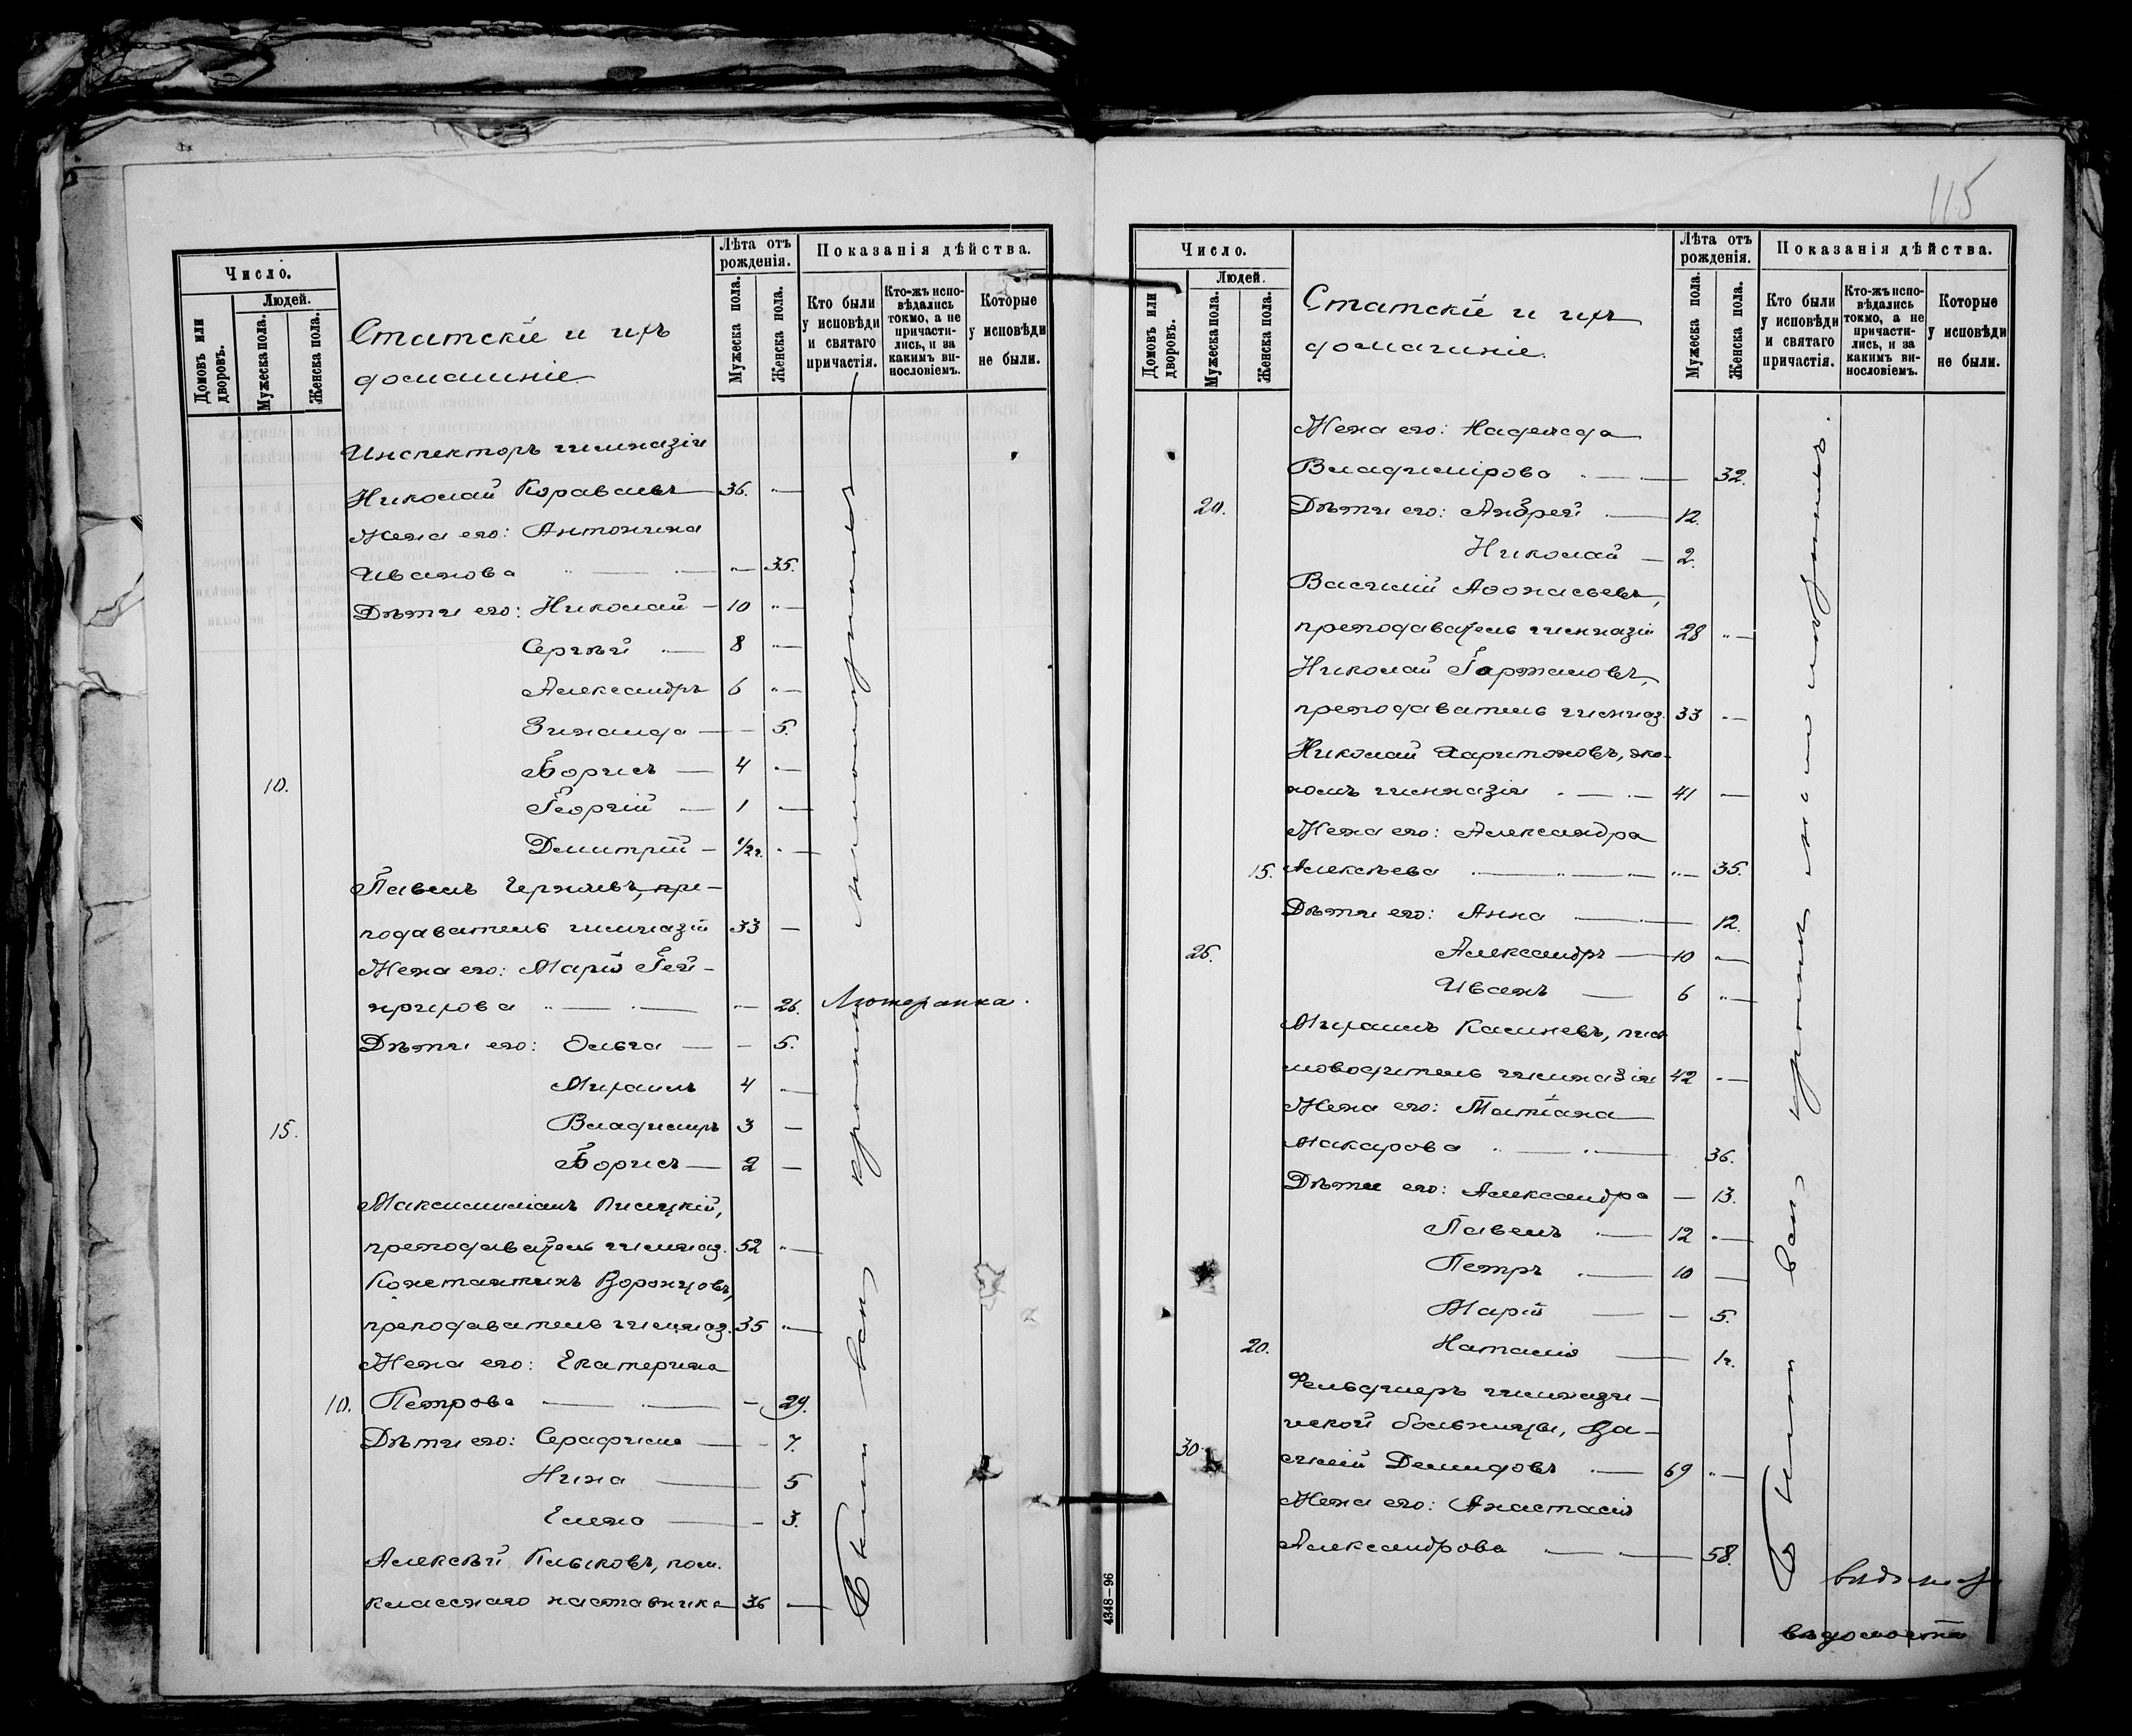 Число.
Домовъ или дворовъ.
Людей.
Мужеска пола.
Женска пола.
Статскіе и ихъ
домашніе.
Лѣта отъ рожденія.
Мужеска пола.
Женска пола.
Показанія дѣйства.
Кто были у исповѣди и святаго причастія.
Кто-жъ исповѣдались токмо, а не причастились, и за какимъ винословіемъ.
Которые у исповѣди не были.
Инспекторъ гимназіи
Николай 36. "
Жена его: Антонина
Иванова " — 35.
Дѣти его: Николай — 10 "
Сергѣй — 8 "
Александръ 6 "
Зинаида — 5.
10. Борисъ — 4 "
Георгій — 1 —
Димитрій — 1/2 г. "
Павелъ Черняевъ, пре-
подаватель гимназіи 33 —
Жена его: Марія Ген-
рихова " — 26. Лютеранка.
Дѣти его: Ольга — 5.
Михаилъ 4 —
15. Владиміръ 3 —
Борисъ — 2 —
Максимиліанъ
преподаватель гимназ. 52 "
Константинъ Воронцовъ,
преподаватель гимназ. 35 "
Жена его: Екатерина
10. Петрова — 29.
Дѣти его: Серафима — 7.
Нина — 5
Елена — 3.
Алексѣй Клыковъ, пом.
класснаго наставника 36 —
Были вап кромѣ малолѣтнихъ
115
Число.
Домовъ или дворовъ.
Людей.
Мужеска пола.
Женска пола.
Статскіе и ихъ
домашніе.
Лѣта отъ рожденія.
Мужеска пола.
Женска пола.
Показанія дѣйства.
Кто были у исповѣди и святаго причастія.
Кто-жъ исповѣдались токмо, а не причастились, и за какимъ винословіемъ.
Которые у исповѣди не были.
Жена его: Надежда
Владимірова — 32.
20. Дѣти его: Андрей — 12.
Николай — 2.
Василій Аѳонасьевъ,
преподаватель гимназіи 28 "
Николай
преподаватель гимназ. 33 "
Николай Харитоновъ, эко-
номъ гимназіи — 41 —
Жена его: Александра
15. Алексѣева " — 35.
Дѣти его: Анна — 12.
25. Александръ — 10 —
Иванъ — 6 "
Михаилъ Калиневъ, пись
моводитель гимназіи 42 "
Жена его: Татіана
Макарова " — 36.
Дѣти его: Александра — 13.
Павелъ — 12 "
Петръ — 10 —
Марія — 5.
20. Наталія — 1 г.
Фельдшеръ гимнази-
ческой больницы, Ва-
30. силій Демидовъ — 69 "
Жена его: Анастасія
Александрова — 58.
Были кромѣ малолѣтнихъ.
вѣдомости
4348—96